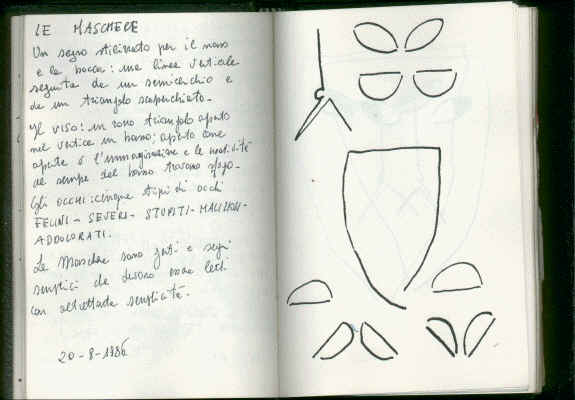 LE MASCHERE
Un segno stilizzato per il naso
e la bocca: una linea verticale
seguita da un semicerchio e
da un triangolo scoperchiato.
Il viso: un vano triangolo aperto
nel vertice in basso: aperto come
aperte è l'immaginazione e le
da sempre dal basso trovano sfogo.
Gli OCCHI: cinque tipi di occhi
FELINI - SEVERI - STUPITI - MALIZIOSI -
ADDOLORATI.
Le Maschere sono gesti e segni
semplici che devono essere letti
con altrettanta semplicità.
20-8-1986